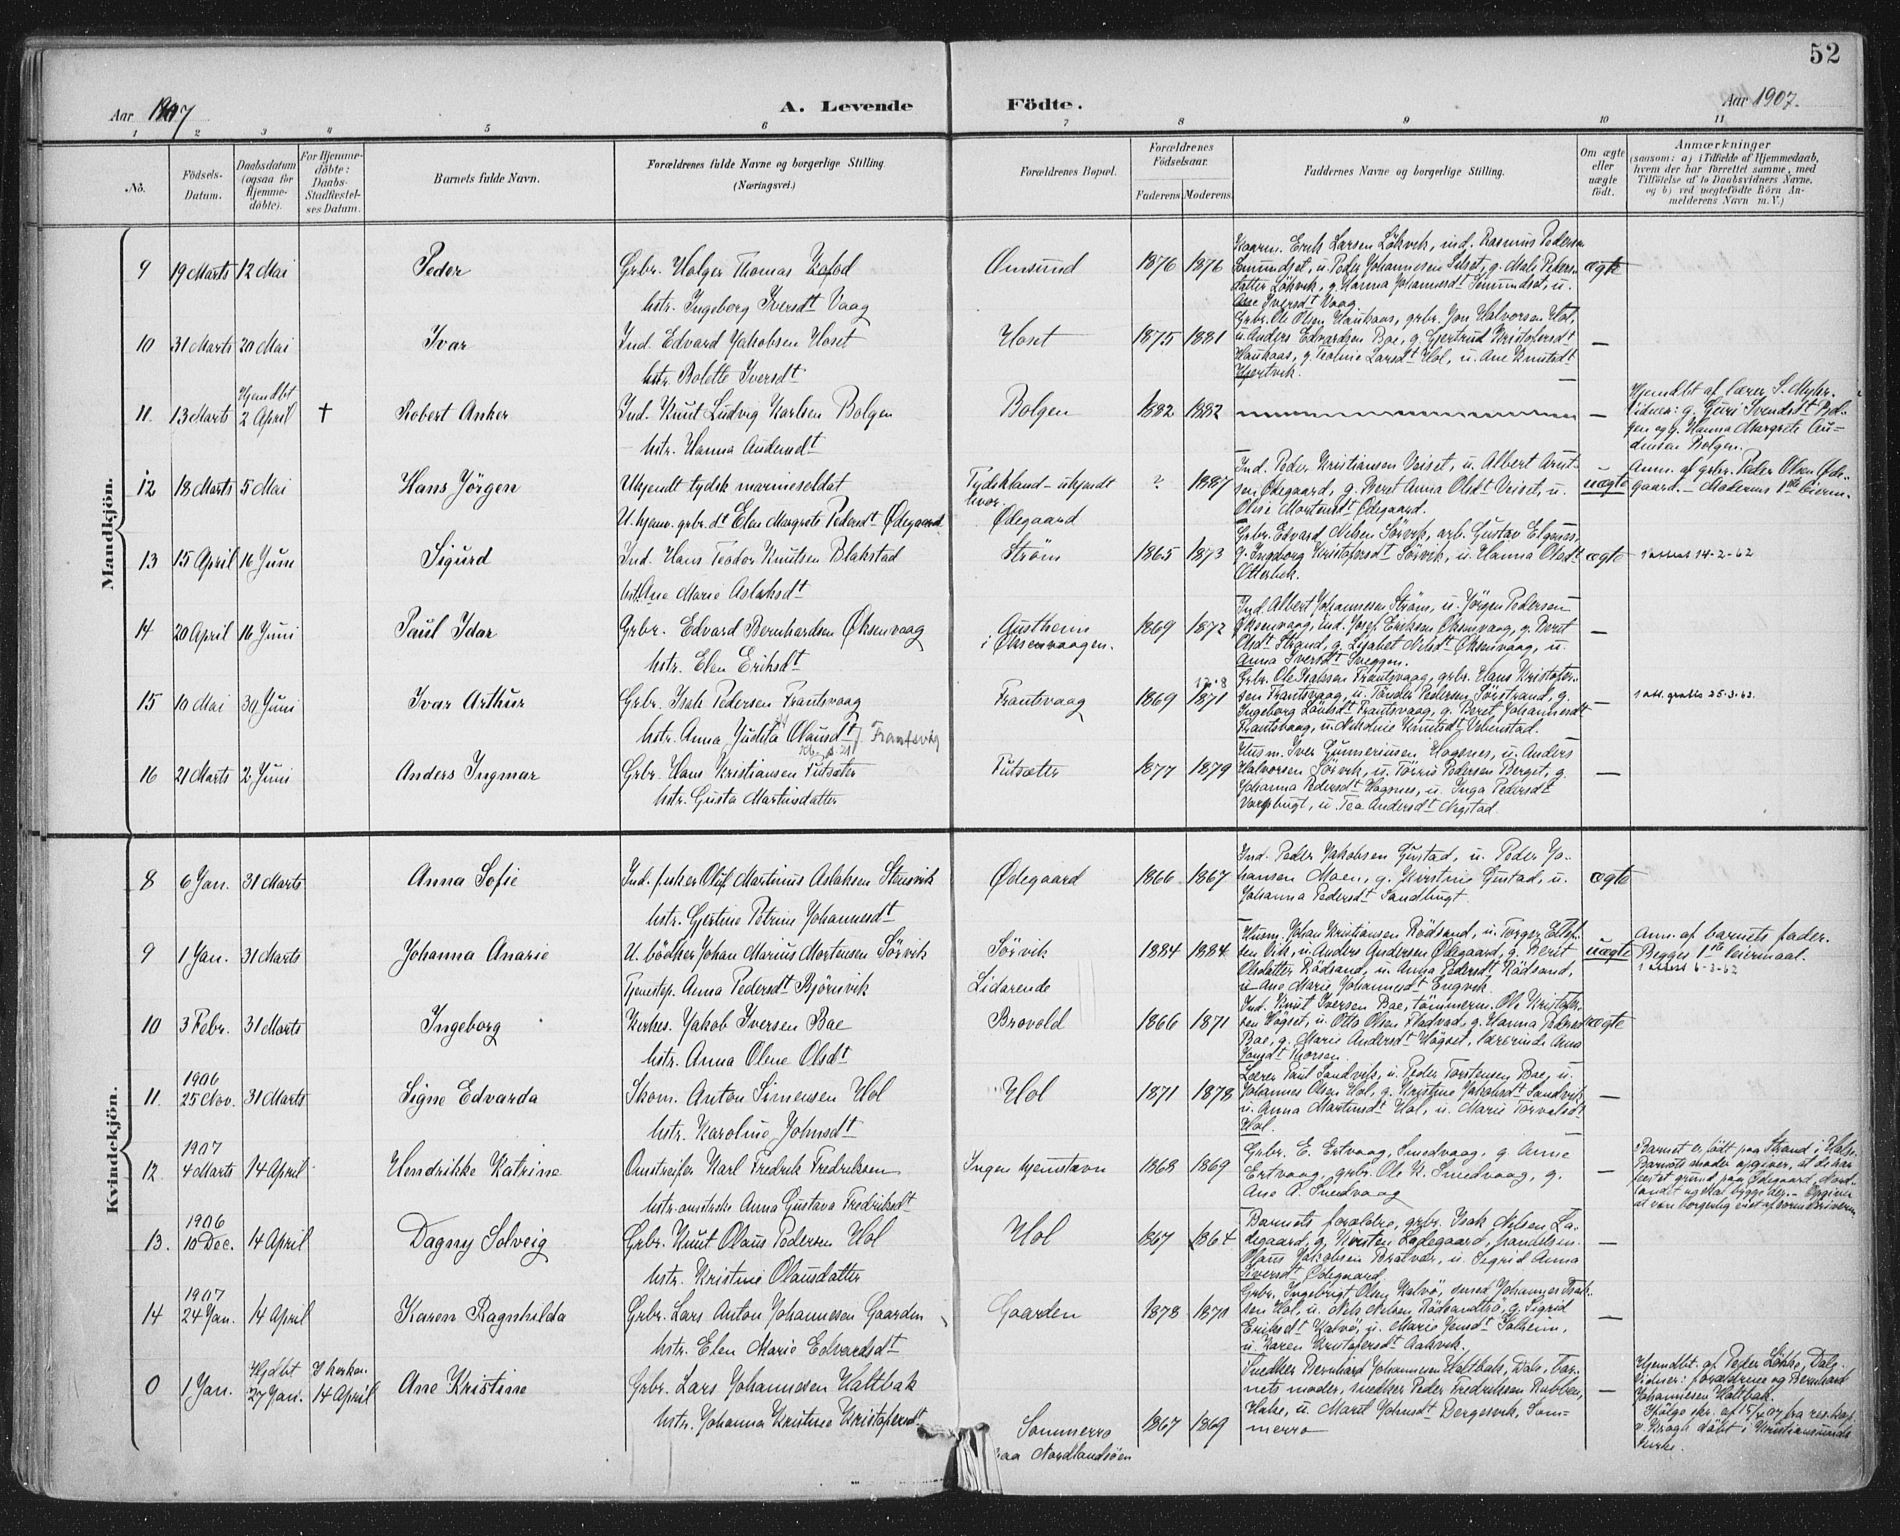 52
Aar 1907
A. Levende Födte.
Aar 1907.
1 2 3 4 5 6 7 8 9 10 11
No.
Födsels-Datum.
Daabsdatum (ogsaa for Hjemme-döbte).
For Hjemme-döbte: Daabs-Stadfæstel-ses Datum.
Barnets fulde Navn.
Forældrenes fulde Navne og borgerlige Stilling (Næringsvei.)
Forældrenes Bopæl.
Forældrenes Födselsaar.
Faderens Moderens
Faddernes Navne og borgerlige Stilling.
Om ægte eller uægte födt.
Anmærkninger
(saasom: a) i Tilfælde af Hjemmedaab,
hvem der har forrettet samme, med
Tilföielse af to Daabsvidners Navne,
og b) ved uægtefödte Börn An-
melderens Navn m. V.)
Mandkjön.
9 19 Marts 12 Mai Peder Grbr. Holger Thomas Kofod Omsund 1876 1876 ægte
hstr. Ingeborg Iversdt Vaag
Kaarm. Erik Larsen Lökvik, ind. Rasmus Pedersen
Semundset, u. Peder Johannesen Selset, g. Male Peders-
datter Lökvik, g. Hanna Johannesdt Semundset, u.
Ane Iversdt Vaag
10 31 Marts 20 Mai Ivar Ind. Edvard Jakobsen Hoset Hoset 1875 1881 —
hstr. Bolette Iversdt
Grbr. Ole Olsen Haukaas, grbr. Jon Halvorsen Hol,
u. Anders Edvardsen Boe, g. Gjertrud Kristofersdt
Haukaas, g. Teoline Larsdt Hol, u. Ane Knutsdt
Hjertvik.
11. 13 Marts Hjemdbt 2 April † Robert Anker Ind. Knut Ludvig Karlsen Bolgen Bolgen 1882 1882 —
hstr. Hanna Andersdt
Hjemdbt af lærer S. Myhr.
Vidner: g. Guri Svendsdt Bol-
gen og g. Hanna Margrete An-
densen Bolgen.
12 18 Marts 5 Mai Hans Jörgen Ukjendt tysk marinesoldat Tydskland – ukjendt hvor. ? 1887 uægte
U. hjemv. grbr. dt Elen Margrete Pedersdt Ødegaard Ødegaard
Ind. Peder Kristiansen Veiset, u. Albert Arnt-
sen Ødegaard, g. Beret Anna Olsdt Veiset, u.
Olise Martinsdt Ødegaard.
Anm. af grbr. Peder Olsen Øde-
gaard. – Moderens 1ste leierm.
13 15 April 16 Juni Sigurd Ind. Hans Teodor Knutsen Blakstad Ström 1865 1873 ægte 1 attest 14-2-62
hstr. Ane Marie Aslaksdt
Grbr. Edvard Nilsen Sörvik, arb. Gustav Elgenes.
g. Ingeborg Kristofersdt Sörvik, u. Hanna Olsdt
Otterbek.
14 20 April 16 Juni Paul Idar Grbr. Edvard Bernhardsen Øksenvaag Austheim i Øksenvaagen. 1869 1872 —
hstr. Elen Eriksdt
Ind. Albert Johannesen Ström, u. Jörgen Pedersen
Øksenvaag, ind. Josef Eriksen Øksenvaag, g. Beret
Olsdt Strand, g. Lisabet Nilsdt Øksenvaag, u.
Anna Iversdt Sveggen.
15 10 Mai 30 Juni Ivar Arthur Grbr. Isak Pedersen Frantsvaag Frantsvaag 1869 1871 — 1 att. gratis 25-3-62.
hstr. Anna Judita Olausdt Frantsvåg
Grbr. Ole Isaksen Frantsvaag, grbr. Hans Kristofer-
sen Frantsvaag, u. Tander Pedersen Sörstrand, g.
Ingeborg Larsdt Frantsvaag, g. Beret Johannesdt
Frantsvaag, u. Nikoline Knutsdt Visenstad.
16 21 Marts 2 Juni Anders Ingmar Grbr. Hans Kristiansen Futsæter Futsæter 1877 1879 —
hstr. Gusta Martinsdatter
Husm. Iver Gunneriusen Hagenes, u. Anders
Halvorsen Sörvik, u. Törris Pedersen Berget, g.
Johanna Pedersdt Hagnes, u. Inga Pedersdt
Vargsbugt, u. Tea Andersdt Megstad.
Kvindekjön.
8 6 Jan. 31 Marts Anna Sofie Ind. fisker Oluf Martinus Aslaksen Stensvik Ødegaard 1866 1867 ægte
hstr. Gjertine Petrine Johannesdt
Ind. Peder Jakobsen Gustad, u. Peder Jo-
hansen Moen, g. Kirstine Gustad, u.
Johanna Pedersdt Sandbugt.
9 1 Jan. 31 Marts Johanna Anarie U. bödker Johan Marius Mortensen Sörvik Sörvik 1884 1884 uægte
Tjenestep. Anna Pedersdt Björnvik Lidarende
Husm. Johan Kristiansen Rödsand, u. Torger Eilef-
sen Vik, u. Anders Andersen Ødegaard, g. Berit
Olsdatter Rödsand, u. Anna Pedersdt Rödsand,
u. Ane Marie Johannesdt Engvik.
Anm. af barnets fader.
Begges 1ste leiermaal.
1 attest 6-3-62
10 3 Febr. 31 Marts Ingeborg Kirkes. Jakob Iversen Bae Brovold 1866 1871 ægte
hstr. Anna Olene Olsdt
Ind. Knut Iversen Bae, tömmerm. Ole Kristofer-
sen Högset, u. Otto Olsen Fladvad, g. Hanna Pedersdt
Bae, g. Marie Andersdt Högset, lærerinde Anna
Jonsdt Thorsen.
11. 1906 25 Nov. 31 Marts Signe Edvarda Skom. Anton Simensen Hol Hol 1871 1878 —
hstr. Karoline Johnsdt
Lærer Paul Sandvik, u. Peder Torstensen Bae, u.
Johannes Olsen Hol, g. Kristine Jakobsdt Sandvik,
u. Anna Martinsdt Hol, u. Marie Torvalsdt
Hol.
12 1907 4 Marts 14 April Hendrikke Katrine Omstreifer Karl Fredrik Fredriksen Ingen hjemstavn 1868 1869 —
hstr. omstreifer Anna Gustava Fredriksdt
Grbr. E. Ertvaag, Smedvaag, g. Anne
Ertvaag, grbr. Ole K. Smedvaag, g.
Ane R. Smedvaag
Barnet er födt paa Strand i Halse.
Barnets moder opgiver, at de har
festet grund paa Ødegaard, Nord-
landet og skal bygge der. – Opgiver
at være borgerlig viet af
13. 1906 10 Dec. 14 April Dagny Solveig Grbr. Knut Olaus Pedersen Hol Hol 1867 1864 —
hstr. Kristine Olausdatter
Barnets forældre, grbr. Isak Nilsen La-
degaard, g. Kirsten Ladegaard, handelsm.
Olaus Jakobsen Bratvær, u. Sigrid Anna
Iversdt Ødegaard.
14 1907 24 Jan. 14 April Karen Ragnhilda Grbr. Lars Anton Johannesen Gaarden Gaarden 1878 1870 —
hstr. Elen Marie Edvardsdt
Grbr. Ingebrigt Olsen Kalvö, smed Johannes Isak-
sen Hol, u. Nils Nilsen Rödsandtrö, g. Sigrid
Eriksdt Kalvö, u. Marie Jensdt Solheim,
u. Karen Kristofersdt Aakvik.
0 1 Jan. Hjdbt 27 Jan. I kirken 14 April Ane Kristine Grbr. Lars Johannesen Haltbak Sommerro paa Nordlandsöen 1867 1869 —
hstr. Johanna Kristine Kristofersdt
Snedker Bernhard Johannesen Haltbak, Dale, bar-
nets moder, snedker Peder Fredriksen Rubben,
Halse, u. Marit Johnsdt Bergesvik, Som-
merro
Hjemdbt. af Peder Lökke, Dale.
Vidner: forældrene og Bernhard
Johannesen Haltbak.
Ifölge skr. af 15/4 07 fra res. kap.
v. Krogh döbt i Kristiansunds
kirke.